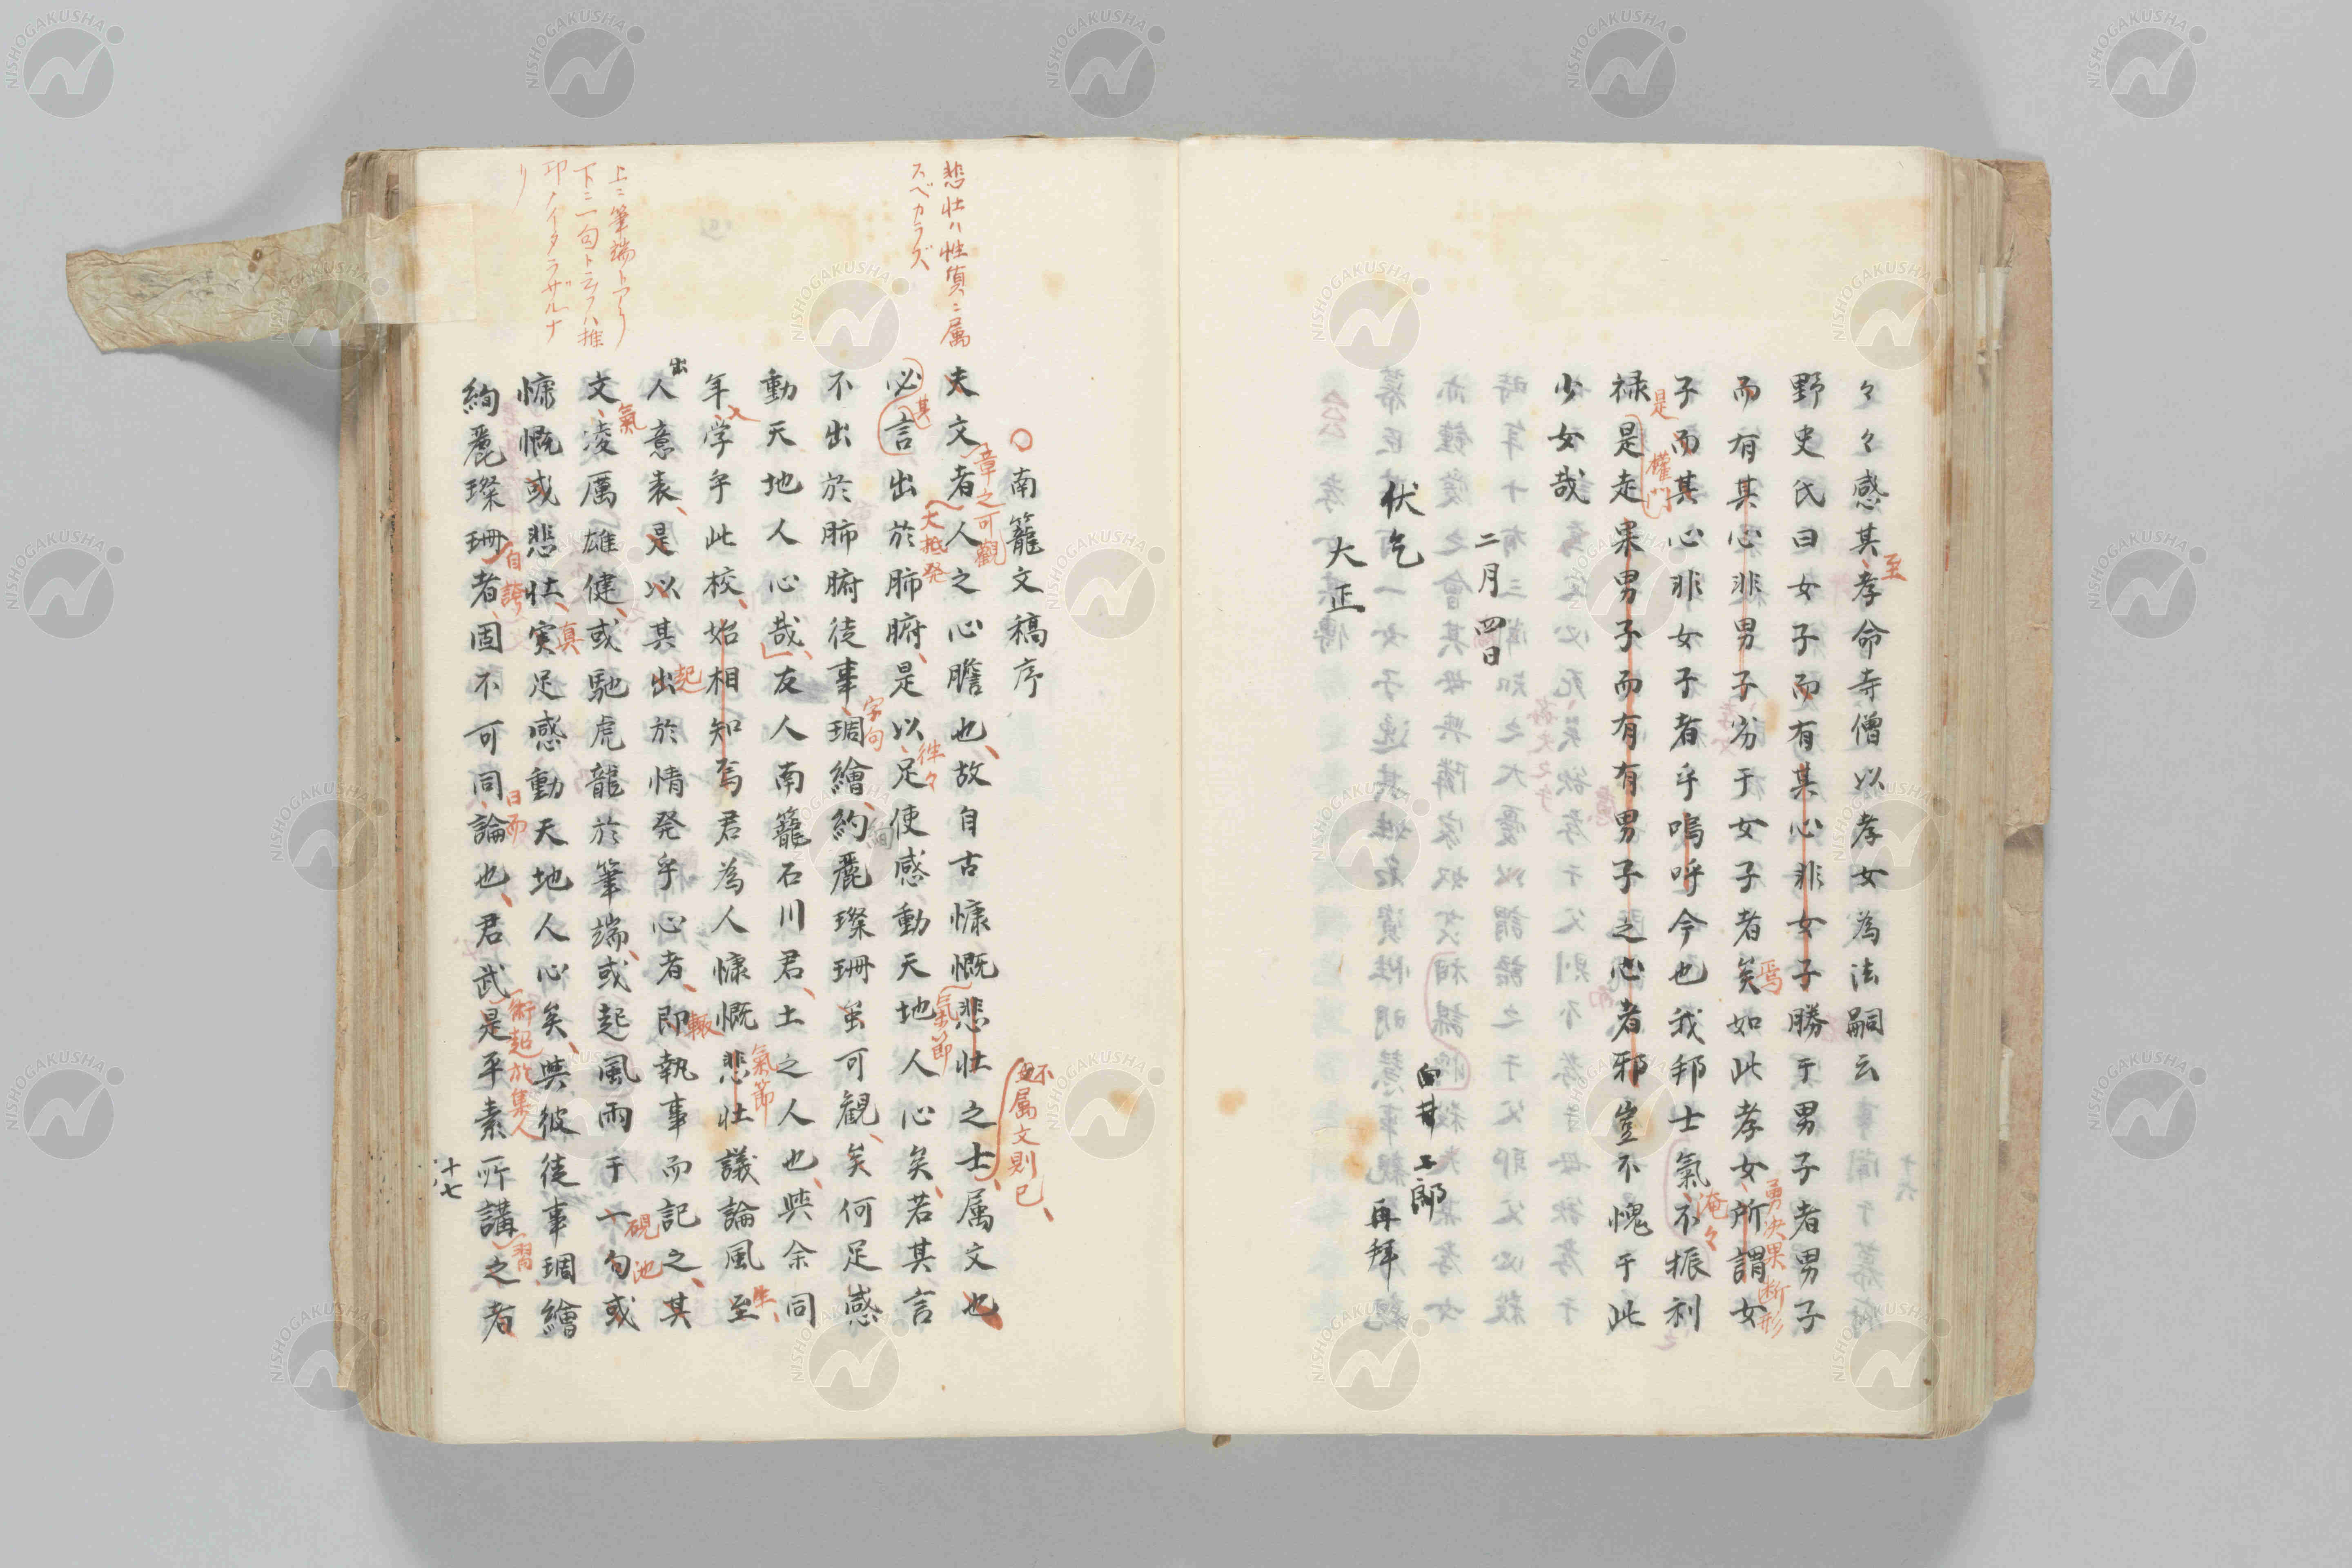 々々感其孝命寺僧以孝女為法嗣云
至
野史氏曰女子而有其心非女子勝于男子者男子
而有其心非男子劣于女子者矣如此孝女所謂女
焉
勇決果断形
子而其心非女子者乎嗚呼今也我邦士氣不振利
淹々
禄是走果男子而有有男子之心者邪豈不愧于此
是
權門
少女哉
二月四日
伏乞
大正
再拜
十七
○南籠文稿序
夫文者人之心膽也故自古慷慨悲壮之士属文也
章之可觀
氣節
属文則已
必言出於肺腑是以足使感動天地人心矣若其言
其
大抵発
往々
不出於肺腑徒事琱繪約麗璨珊虽可観矣何足感
字句
絢
動天地人心哉友人南籠石川君土之人也與余同
年学乎此校始相知焉君為人慷慨悲壮議論風至
氣節
生
人意表是以其出於情発乎心者即執事而記之其
出
起
輙
文凌厲雄健或馳虎龍於筆端或起風雨于一句或
氣
硯池
慷慨或悲壮実足感動天地人心矣與彼徒事琱繪
真
絢麗璨珊者固不可同論也君武是平素所講之者
自誇
日而
術起於集人
習
悲壮ハ性質ニ属
スベカラズ
上ニ筆端トアリ
下ニ一句ト云フハ推
印ノイタラザルナ
リ